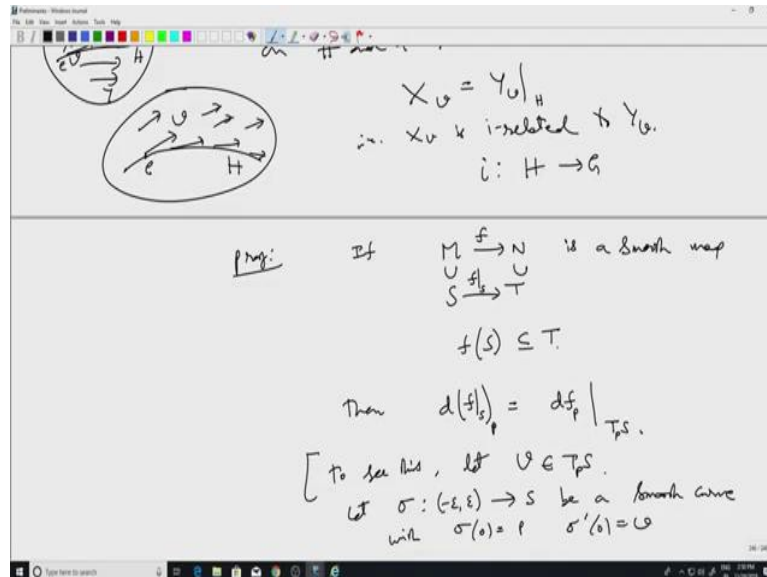 Preliminaries - Windows Journal
File Edit View Insert Actions Tools Help
e υ H
Y
on H
X_υ = Y_υ|_H
i.e. X_υ is i-related to Y_υ.
i: H → G
υ
e H
proof: If M —f→ N is a smooth map
∪ ∪
S —f|_S→ T
f(S) ⊆ T.
Then d(f|_S)_p = df_p|_{T_pS}.
[ To see this, let υ ∈ T_pS.
Let σ: (-ε, ε) → S be a smooth curve
with σ(0) = p σ'(0) = υ
Type here to search